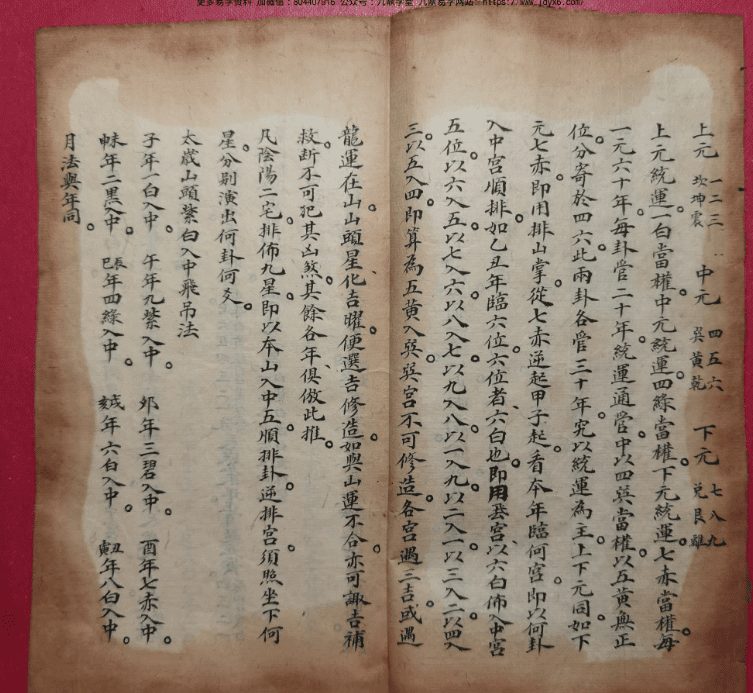 更多易学资料 加微信:804407916 公众号:九鼎学堂 九鼎易学网站:https://www.jdyx6.com/
上元 一二三 坎坤震 中元 四五六 巽黄乾 下元 七八九 兑艮離
上元統運一白當權。中元統運四綠當權。下元統運七赤當權。每
一元六十年。每卦管二十年。統運通管。中以四巽當權。以五黄無正
位。分寄於四六。此兩卦各管三十年。究以統運為主。上下元同。如下
元七赤。即用排山掌。從七赤逆起甲子起。看本年臨何宮。即以何卦
入中宮順排。如乙丑年臨六位。六位者六白也。即用宮以六白佈入中宮
五位。以六入五。以七入六。以八入七。以九入八。以一入九。以二入一。以三入二。以四入
三。以五入四。即算為五黄入巽。巽宮不可修造。各宮遇三吉或遇
龍運在山。山頭星化吉曜。便選吉修造。如與山運不合。亦可諏吉補
救。斷不可犯其凶煞。其餘各年俱倣此推。
凡陰陽二宅排佈九星。即以本山入中五順排卦逆排宮。須照坐下何
星。分別演出何卦何爻。
太歲山頭紫白入中飛吊法
子年一白入中。 午年九紫入中。 卯年三碧入中。 酉年七赤入中。
申未年二黑入中。 巳辰年四綠入中。 亥戌年六白入中。 寅丑年八白入中。
月法與年同。